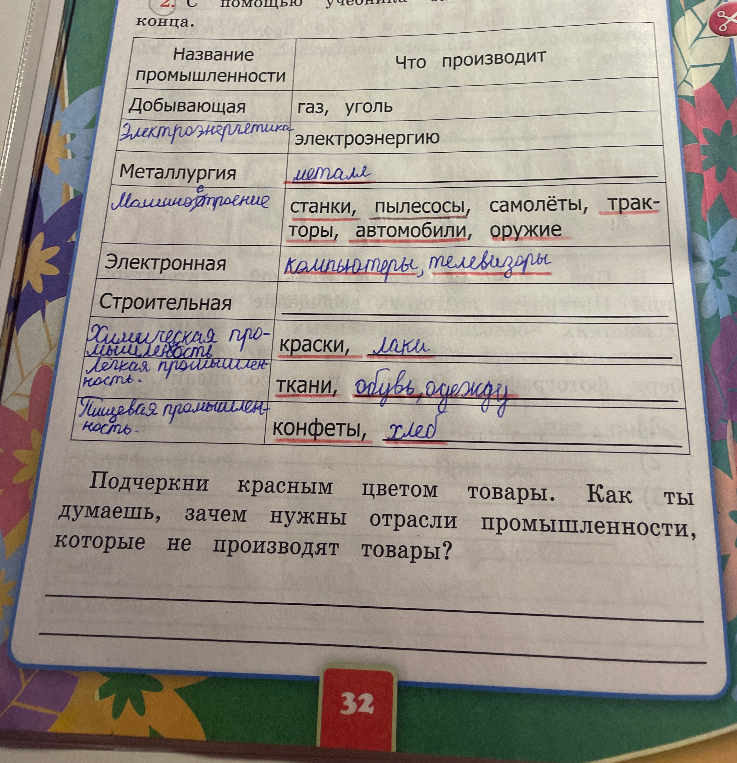 2. С помощью учебника
конца.
Название промышленности
Что производит
Добывающая
газ, уголь
Электроэнергетика
электроэнергию
Металлургия
металл
Машиностроение
станки, пылесосы, самолёты, трак-
торы, автомобили, оружие
Электронная
компьютеры, телевизоры
Строительная
Химическая про-
мышленность
краски, лаки
Лёгкая промышлен-
ность.
ткани, обувь, одежду
Пищевая промышлен-
ность.
конфеты, хлеб
Подчеркни красным цветом товары. Как ты
думаешь, зачем нужны отрасли промышленности,
которые не производят товары?
32